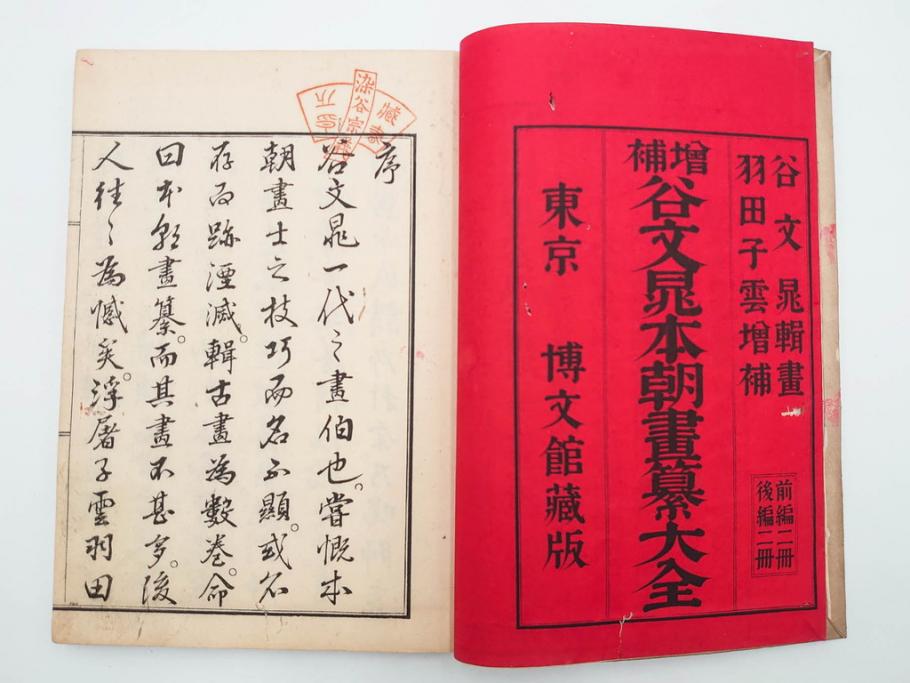 谷文晁輯畫
羽田子雲增補
前編二冊
後編二冊
增補
谷文晁本朝畫纂大全
東京 博文館藏版
染谷宗
藏書
之印
序
谷文晁一代之畫伯也。嘗慨本
朝畫士之技巧而名不顯。或名
存而跡湮滅。輯古畫為數卷。命
曰本朝畫纂。而其畫不甚多。後
人往々為憾矣。浮屠子雲羽田